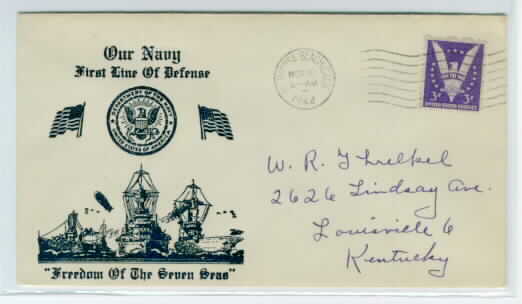 Our Navy
First Line Of Defense
DEPARTMENT OF THE NAVY
UNITED STATES OF AMERICA
"Freedom Of The Seven Seas"
BEACH
1942
3¢ 3¢
UNITED STATES POSTAGE
W. R. Threlkel
2626 Lindsay Ave.
Louisville 6
Kentucky